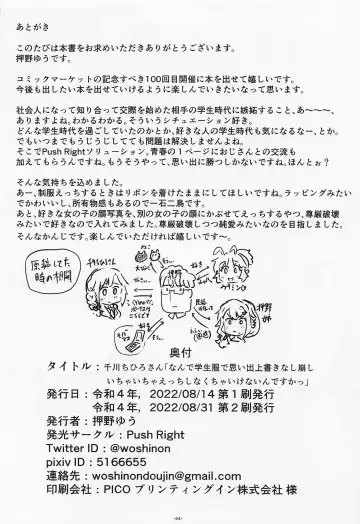 あとがき
このたびは本書をお求めいただきありがとうございます。
押野ゆうです。
コミックマーケットの記念すべき100回目開催に本を出せて嬉しいです。
今後も出したい本を出せていけるように楽しんでいきたいなって思います。
社会人になって知り合って交際を始めた相手の学生時代に嫉妬すること、あ〜〜〜、
ありますよね。わかるわかる。そういうシチュエーション好き。
どんな学生時代を過ごしていたのかとか、好きな人の学生時代も気になるなー、とか。
でもいつまでもうじうじしてても問題は解決しませんよね。
そこでPush Rightソリューション。青春の1ページにおじさんとの交流も
加えてもらうんですね。もうそうやって、思い出に勝つしかないです。ほんとぉ?
そんな気持ちを込めました。
あー、制服えっちするときはリボンを着けたままにしてほしいですね。ラッピングみたい
でかわいいし、所有物感もあるので一石二鳥です。
あと、好きな女の子の顔写真を、別の女の子の顔にかぶせてえっちするやつ、尊厳破壊
みたいで好きなので入れてみました。尊厳破壊しつつ純愛みたいなのを目指しました。
そんなかんじです。楽しんでいただければ嬉しいです〜。
原稿してた
時の相関
押野
奥付
タイトル:千川ちひろさん「なんで学生服で思い出上書きなし崩し
いちゃいちゃえっちしなくちゃいけないんですかっ」
発行日:令和4年，2022/08/14 第1刷発行
令和4年，2022/08/31 第2刷発行
発行者:押野ゆう
発光サークル:Push Right
Twitter ID:@woshinon
pixiv ID:5166655
連絡先:woshinondoujin@gmail.com
印刷会社:PICO プリンティングイン株式会社 様
-24-